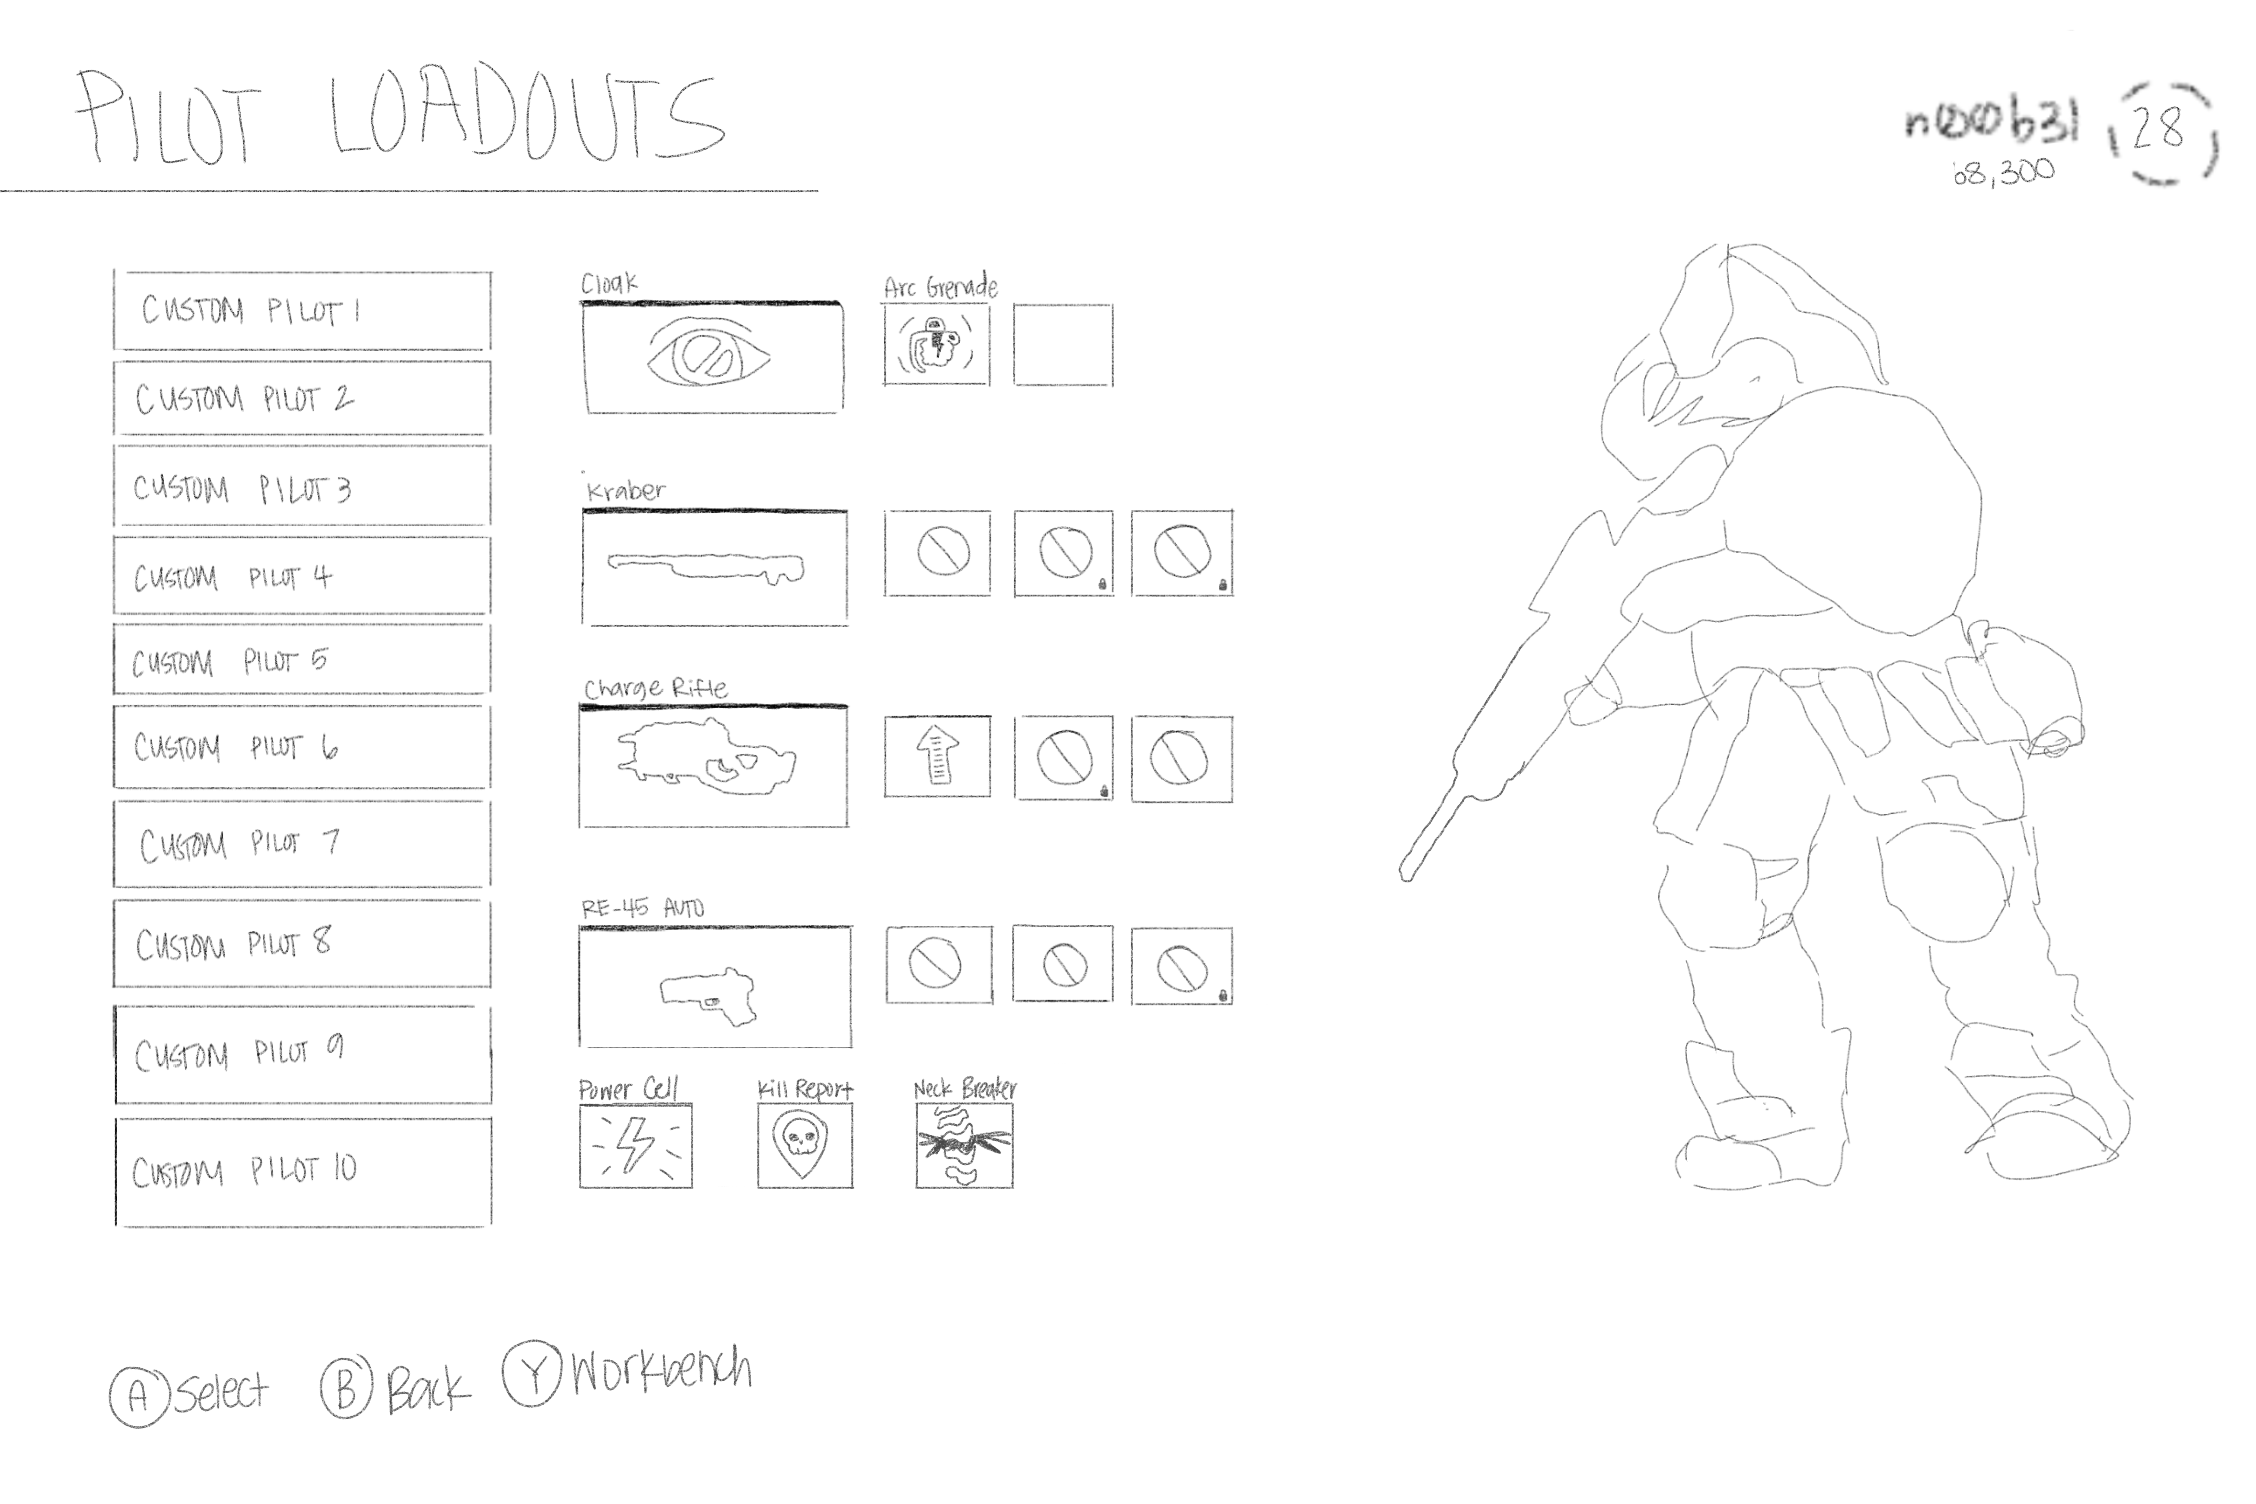 PILOT LOADOUTS
28
68,300
CUSTOM PILOT 1
CUSTOM PILOT 2
CUSTOM PILOT 3
CUSTOM PILOT 4
CUSTOM PILOT 5
CUSTOM PILOT 6
CUSTOM PILOT 7
CUSTOM PILOT 8
CUSTOM PILOT 9
CUSTOM PILOT 10
Cloak
Arc Grenade
Kraber
Charge Rifle
RE-45 AUTO
Power Cell
Kill Report
Neck Breaker
A Select
B Back
Y Workbench